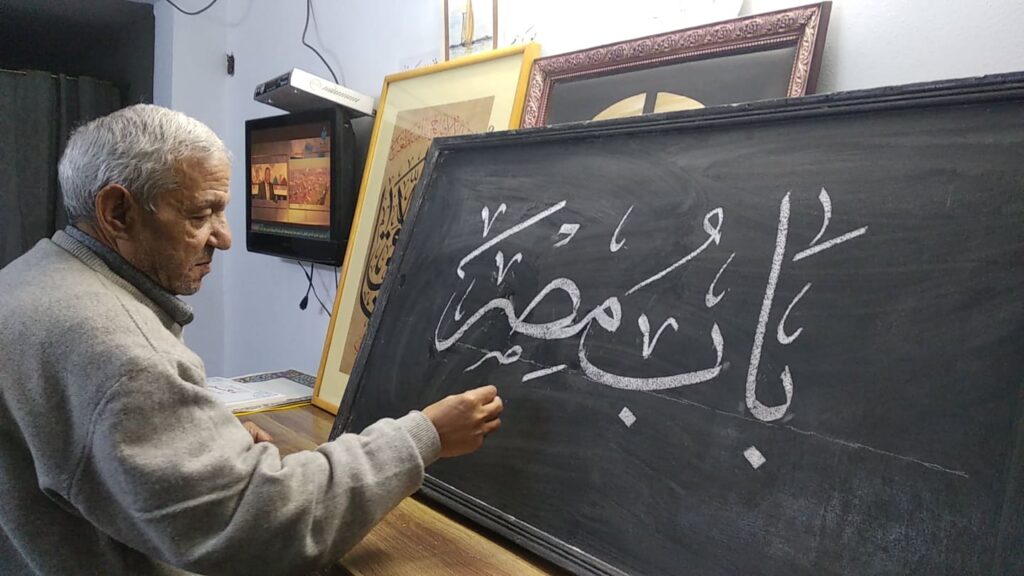 باب مصر